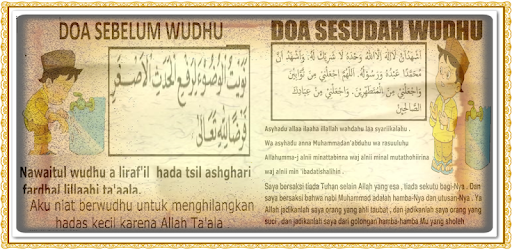 DOA SEBELUM WUDHU
نَوَيْتُ الْوُضُوْءَ لِرَفْعِ الْحَدَثِ الْأَصْغَرِ
فَرْضًا لِلّٰهِ تَعَالَى
Nawaitul wudhu a liraf'il hada tsil ashghari
fardhal lillaahi ta'aala.
Aku niat berwudhu untuk menghilangkan
hadas kecil karena Allah Ta'ala
DOA SESUDAH WUDHU
اَشْهَدُ اَنْ لَا اِلٰهَ اِلَّا اللهُ وَحْدَهُ لَا شَرِيْكَ لَهُ. وَاَشْهَدُ اَنَّ
مُحَمَّدًا عَبْدُهُ وَرَسُوْلُهُ. اَللّٰهُمَّ اجْعَلْنِيْ مِنَ التَّوَّابِيْنَ
وَاجْعَلْنِيْ مِنَ الْمُتَطَهِّرِيْنَ. وَاجْعَلْنِيْ مِنْ عِبَادِكَ
الصَّالِحِيْنَ
Asyhadu allaa ilaaha illallah wahdahu laa syariikalahu .
Wa asyhadu anna Muhammadan'abduhu wa rasuuluhu
Allahumma-j alnii minattabinna waj alnii minal mutathohhirina
waj alnii min 'ibadatishalihin .
Saya bersaksi tiada Tuhan selain Allah yang esa , tiada sekutu bagi-Nya . Dan
saya bersaksi bahwa nabi Muhammad adalah hamba-Nya dan utusan-Nya . Ya
Allah jadikanlah saya orang yang ahli taubat , dan jadikanlah saya orang yang
suci , dan jadikanlah saya dari golongan hamba-hamba Mu yang sholeh